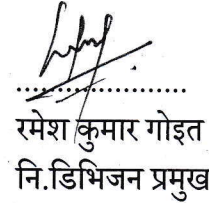 रमेश कुमार गोइत
नि.डिभिजन प्रमुख